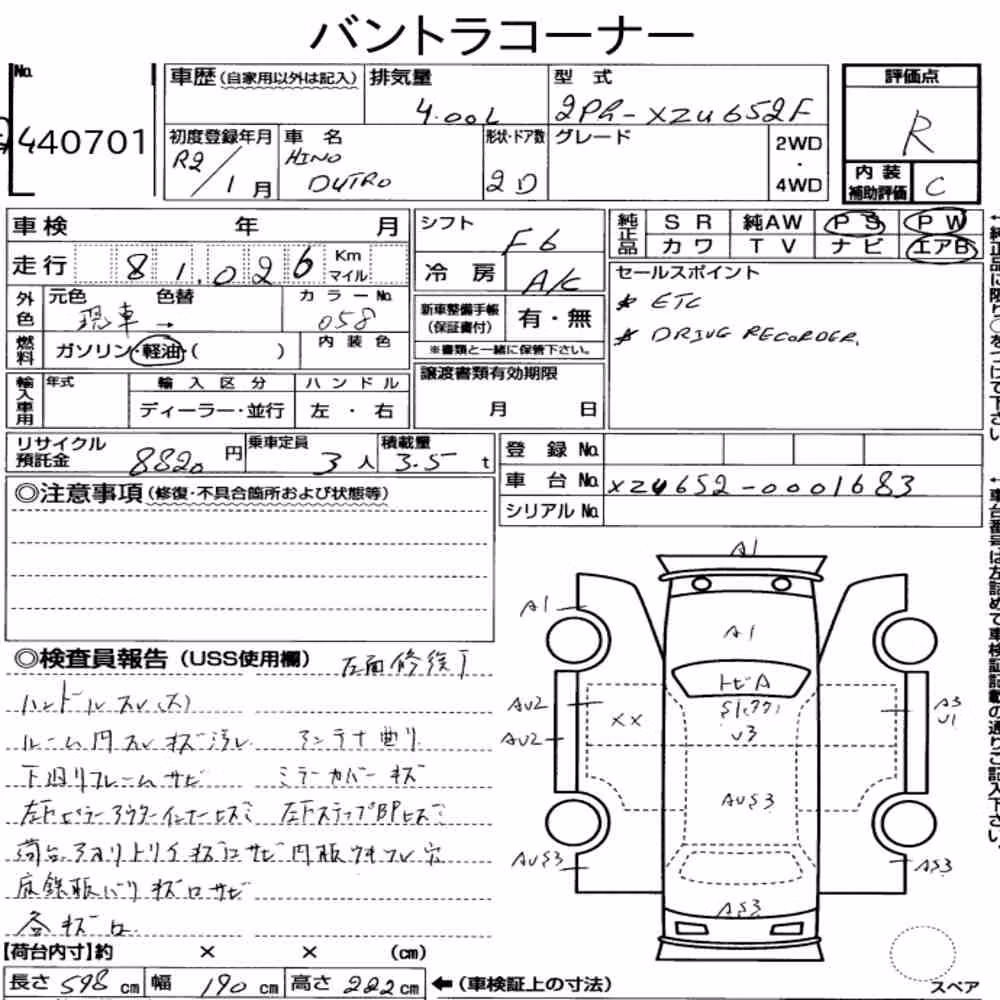 バントラコーナー
No. 440701
車歴 (自家用以外は記入) 排気量 4.00L 型式 2PG-XZU652F
評価点 R
初度登録年月 R2/1月 車名 HINO DUTRO 形状・ドア数 2D グレード 2WD・4WD
内装補助評価 C
車検 年 月
シフト F6
純正品 SR 純AW PS PW
カワ TV ナビ エアB
走行 81,026 Km マイル
冷房 A/C
セールスポイント
* ETC
* DRIVE RECORDER
外色 元色 現車 → 色替 カラーNo. 058
新車整備手帳 (保証書付) 有・無
※書類と一緒に保管下さい。
燃料 ガソリン・軽油・( ) 内装色
輸入車用 年式 輸入区分 ハンドル
ディーラー・並行 左・右
譲渡書類有効期限
月 日
リサイクル預託金 8820円 乗車定員 3人 積載量 3.5t
登録No.
車台No. XZU652-0001683
シリアルNo.
◎注意事項 (修復・不具合箇所および状態等)
◎検査員報告 (USS使用欄) 左面修復
ハンドルスレ(大)
ルーム内スレキズ汚レ アンテナ曲り
下廻りフレームサビ ミラーカバーキズ
左Fピラーアウターインナーヒズミ 左FステップBPヒズミ
荷台アオリトリイキズ凹サビ内板ウキワレ穴
床鉄板ハリキズ凹サビ
各キズ凹
【荷台内寸】約 × × (cm)
長さ 598 cm 幅 190 cm 高さ 222 cm ←(車検証上の寸法)
A1
A1
A1
トビA
AU2
XX
U3
A3
U1
AU2
AUS3
AUS3
AS3
AS3
スペア
←純正品に限り○をつけて下さい
←車台番号は左詰めで車検証記載の通りご記入下さい。